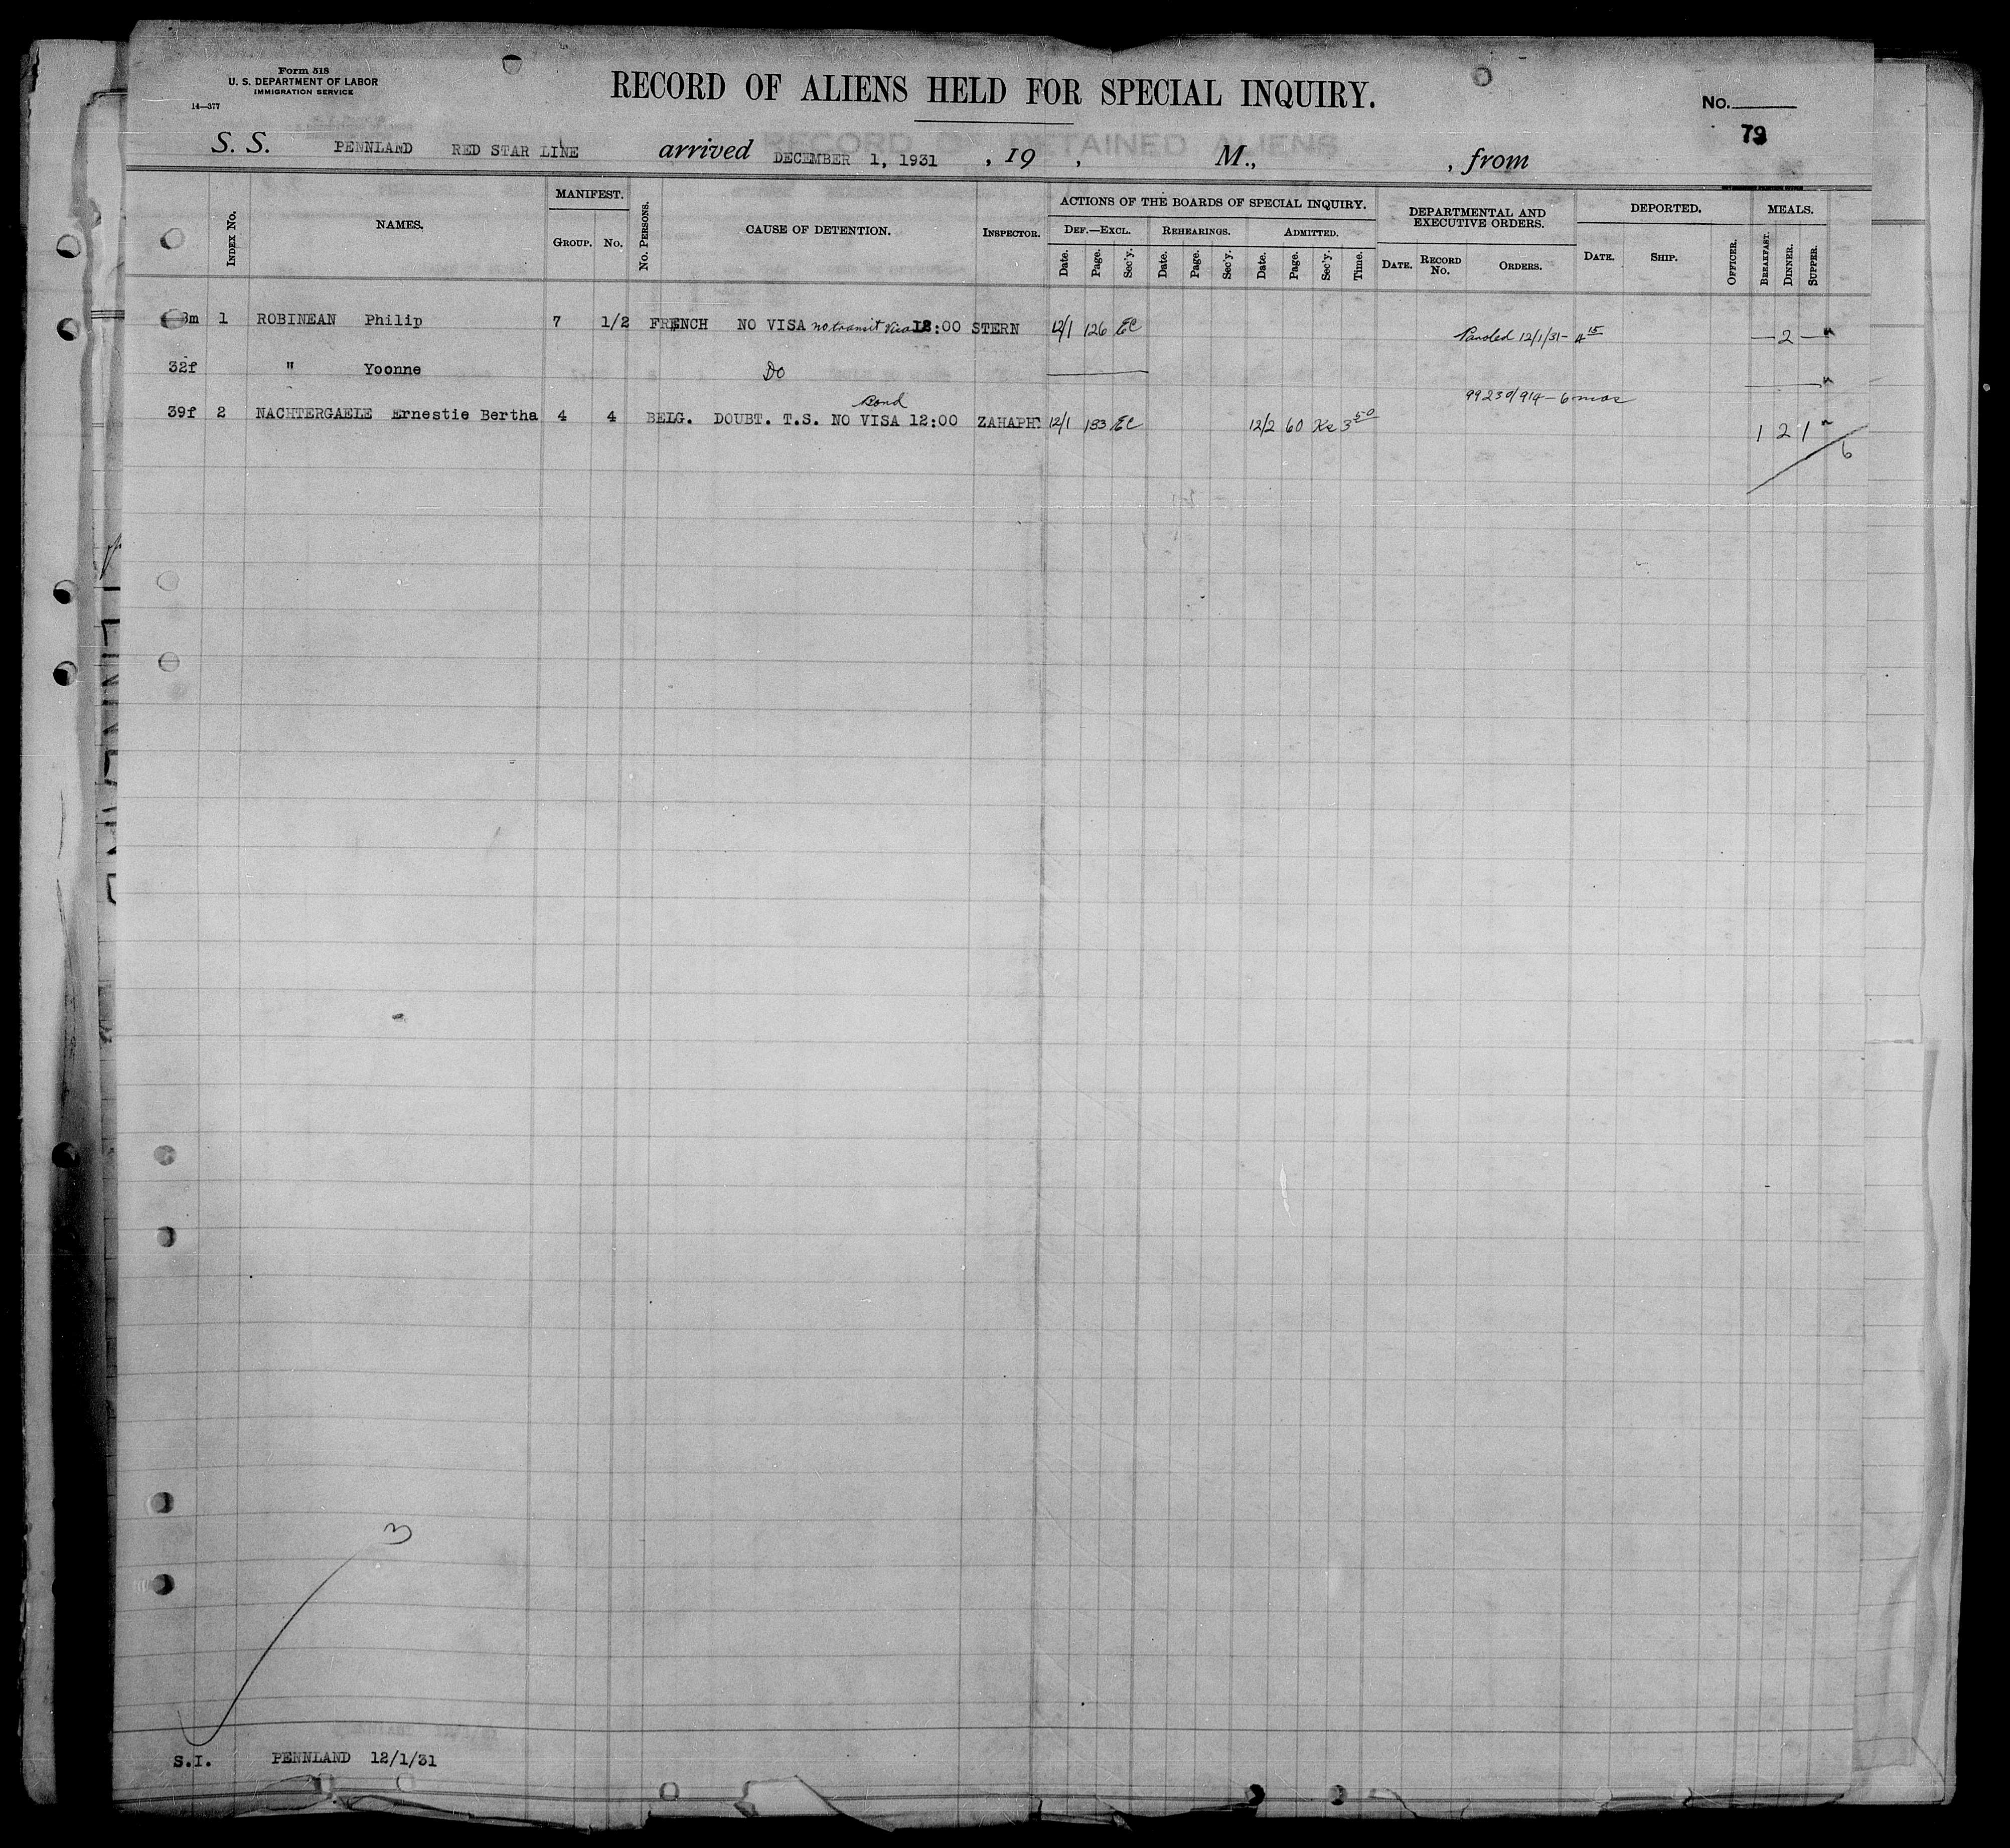 Form 518
U. S. DEPARTMENT OF LABOR
IMMIGRATION SERVICE
14—377
RECORD OF ALIENS HELD FOR SPECIAL INQUIRY.
No.
79
S. S. PENNLAND RED STAR LINE arrived DECEMBER 1, 1931 , 19 , M., , from
INDEX NO. NAMES. MANIFEST. GROUP. NO. NO. PERSONS. CAUSE OF DETENTION. INSPECTOR. ACTIONS OF THE BOARDS OF SPECIAL INQUIRY. DEF.—EXCL. Date. Page. Sec'y. REHEARINGS. Date. Page. Sec'y. ADMITTED. Date. Page. Sec'y. Time. DEPARTMENTAL AND EXECUTIVE ORDERS. DATE. RECORD NO. ORDERS. DEPORTED. DATE. SHIP. OFFICER. MEALS. BREAKFAST. DINNER. SUPPER.
3m 1 ROBINEAN Philip 7 1/2 FRENCH NO VISA no transit visa 12:00 STERN 12/1 126 EC Paroled 12/1/31- 4 15 — 2 — "
32f " Yoonne Do "
99230/914 - 6 mos
Bond
39f 2 NACHTERGAELE Ernestie Bertha 4 4 BELG. DOUBT. T.S. NO VISA 12:00 ZAHAPH 12/1 183 EC 12/2 60 3 50 1 2 1 "
6
3
S.I. PENNLAND 12/1/31